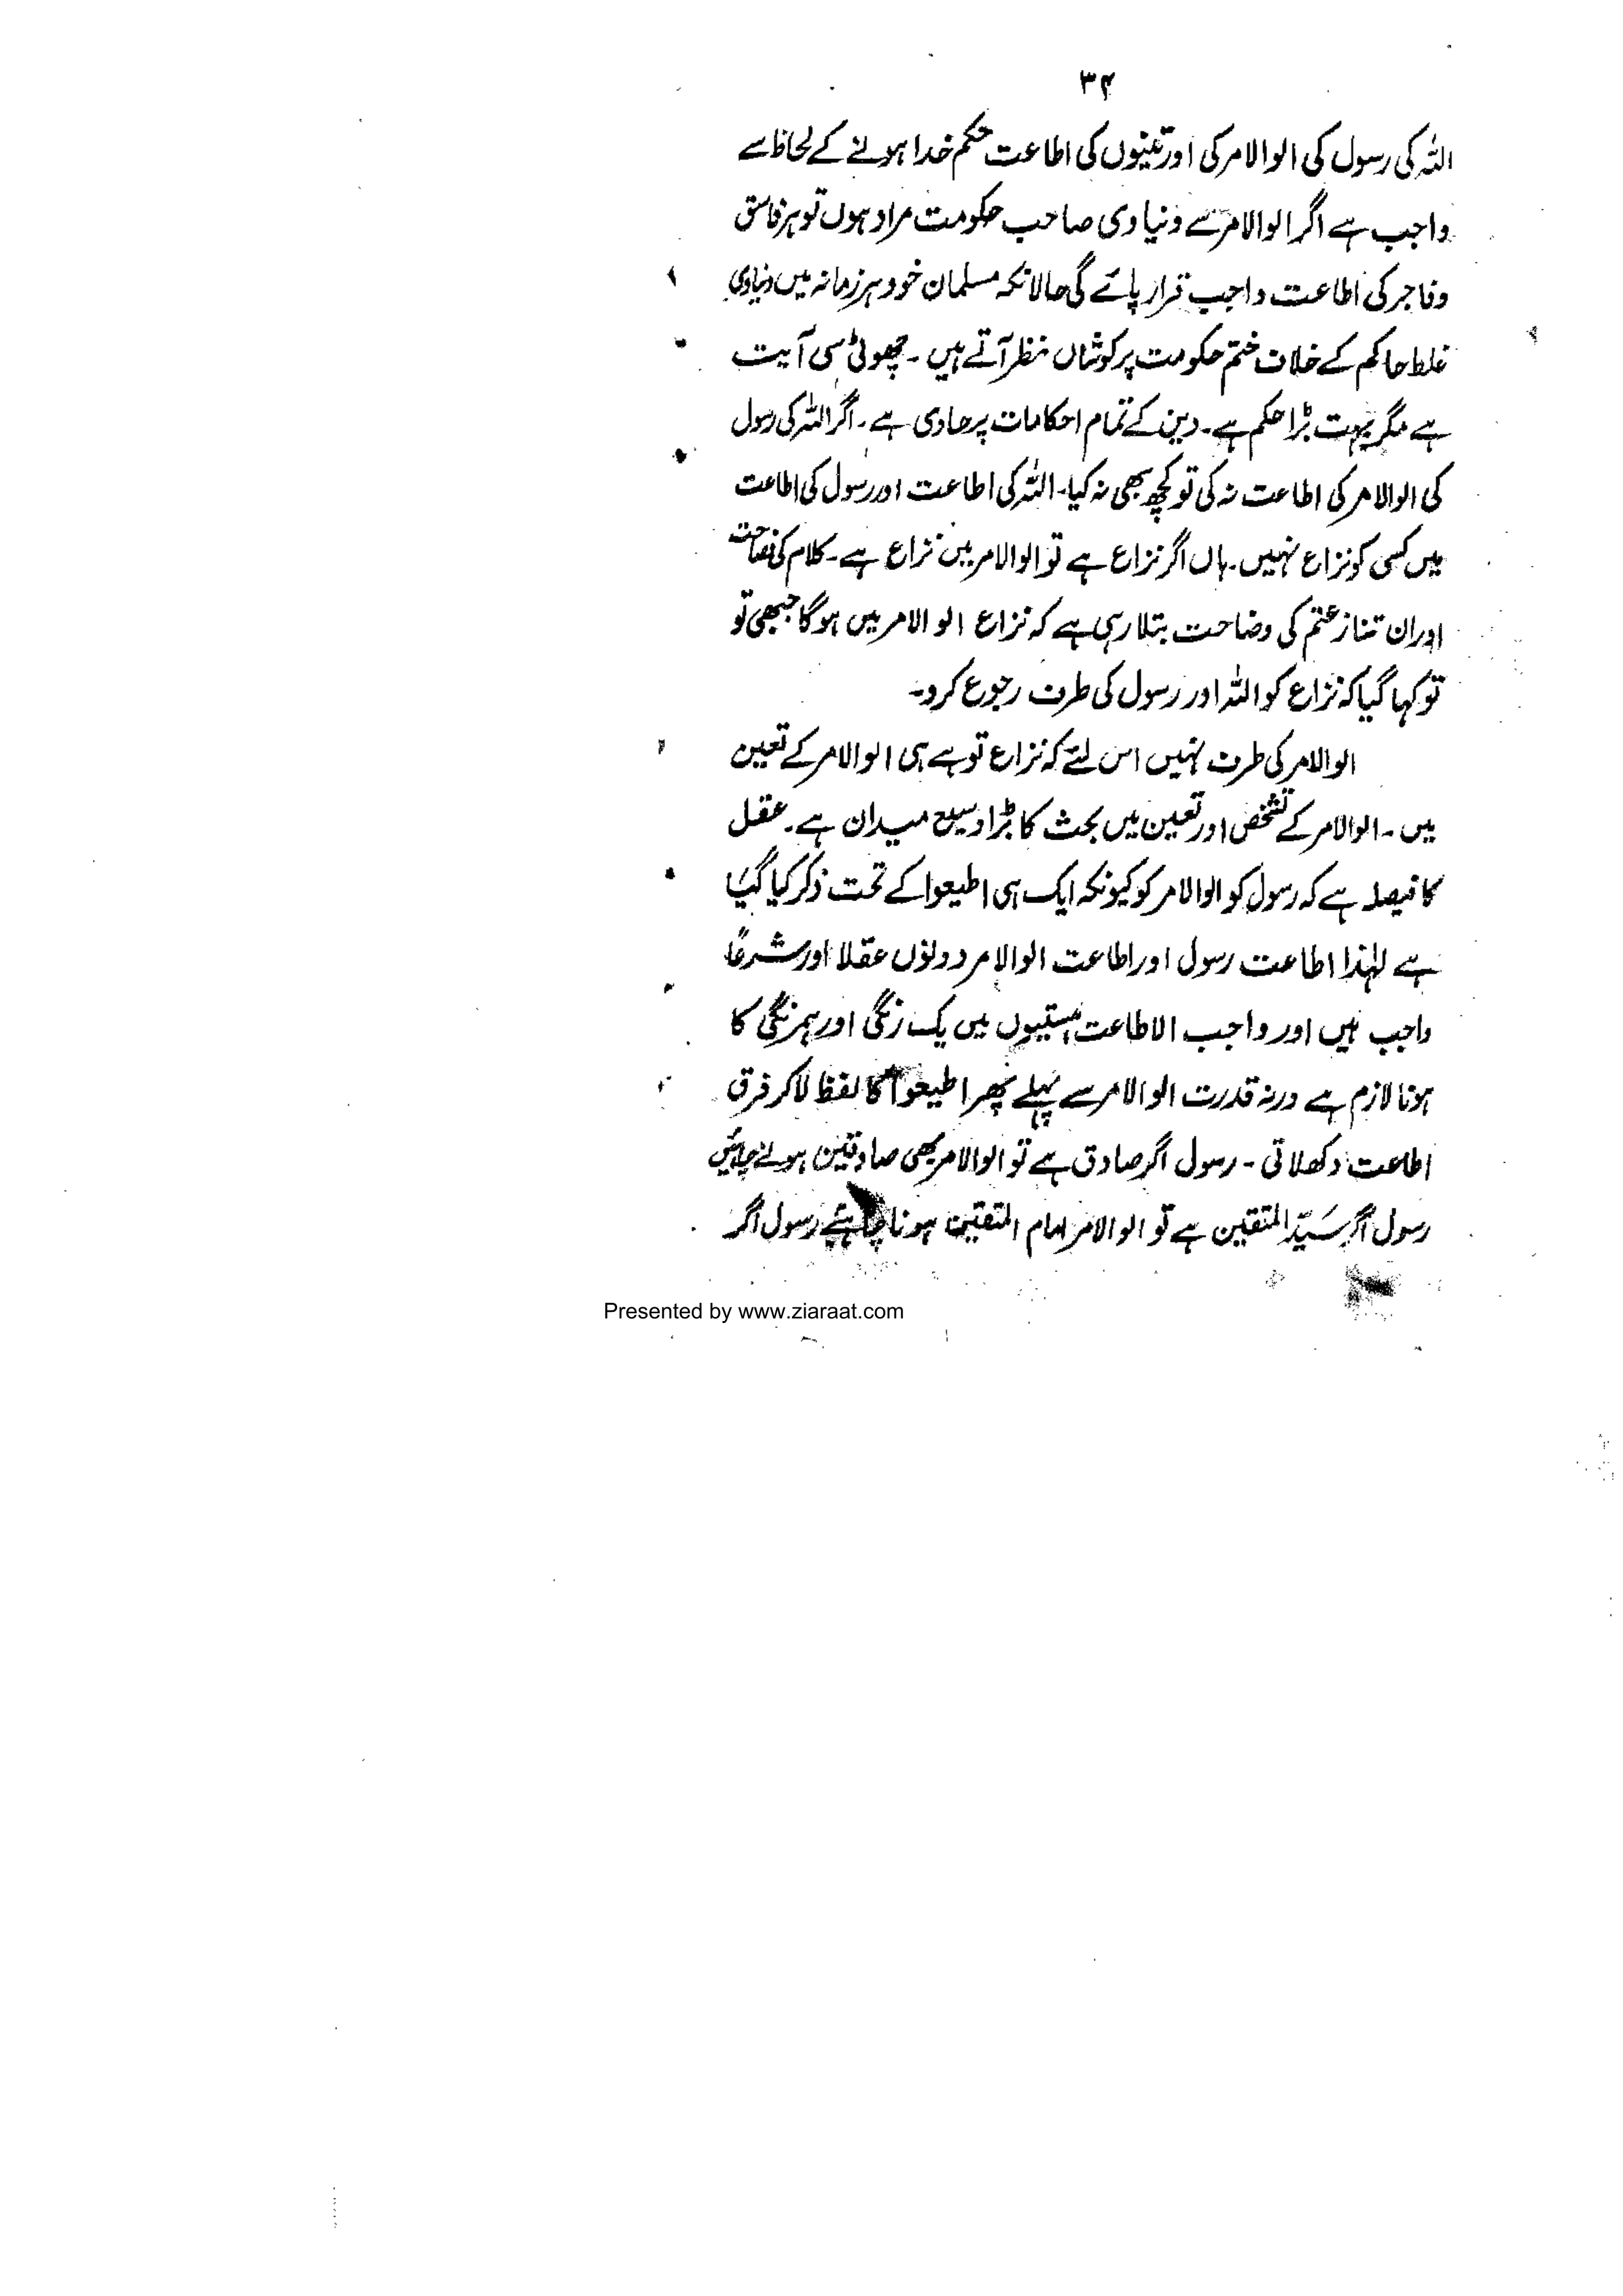 ۳۴
اللہ کی رسول کی الوالامر کی اور تینوں کی اطاعت حکم خدا ہونے کے لحاظ سے
واجب ہے اگر الوالامر سے دنیاوی صاحب حکومت مراد ہوں تو ہر فاسق
وفاجر کی اطاعت واجب قرار پائے گی حالانکہ مسلمان خود ہر زمانہ میں دنیاوی
غلط حاکم کے خلاف ختم حکومت پر کوشاں نظر آتے ہیں ۔ چھوٹی سی آیت
ہے مگر بہت بڑا حکم ہے ۔ دین کے تمام احکامات پر حاوی ہے ۔ اگر اللہ کی رسول
کی الوالامر کی اطاعت نہ کی تو کچھ بھی نہ کیا ۔ اللہ کی اطاعت اور رسول کی اطاعت
میں کسی کو نزاع نہیں ۔ ہاں اگر نزاع ہے تو الوالامر میں نزاع ہے ۔ کلام کی فصاحت
اور ان تنازعتم کی وضاحت بتلا رہی ہے کہ نزاع الوالامر میں ہوگا جبھی تو
تو کہا گیا کہ نزاع کو اللہ اور رسول کی طرف رجوع کرو ۔
الوالامر کی طرف نہیں اس لئے کہ نزاع تو ہے ہی الوالامر کے تعین
میں ۔ الوالامر کے تشخص اور تعین میں بحث کا بڑا وسیع میدان ہے ۔ عقل
کا فیصلہ ہے کہ رسول کو الوالامر کو کیونکہ ایک ہی اطیعوا کے تحت ذکر کیا گیا
ہے لہٰذا اطاعت رسول اور اطاعت الوالامر دونوں عقلا اور شرعاً
واجب ہیں اور واجب الاطاعت ہستیوں میں یک رنگی اور ہمرنگی کا
ہونا لازم ہے ورنہ قدرت الوالامر سے پہلے پھر اطیعوا کا لفظ لاکر فرق
اطاعت دکھلاتی ۔ رسول اگر صادق ہے تو الوالامر بھی صادقین ہونے چاہئیں
رسول اگر سَیّدالمتقین ہے تو الوالامر امام المتقین ہونا چاہئے رسول اگر
Presented by www.ziaraat.com